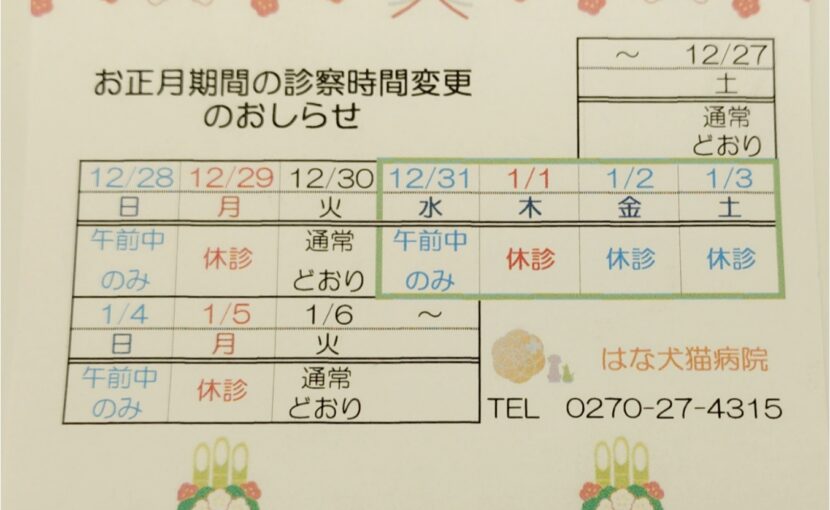 お正月期間の診察時間変更
のおしらせ
～ 12/27
土
通常
どおり
12/28 12/29 12/30 12/31 1/1 1/2 1/3
日 月 火 水 木 金 土
午前中 休診 通常 午前中 休診 休診 休診
のみ どおり のみ
1/4 1/5 1/6 ～
日 月 火
午前中 休診 通常
のみ どおり
はな犬猫病院
TEL 0270-27-4315